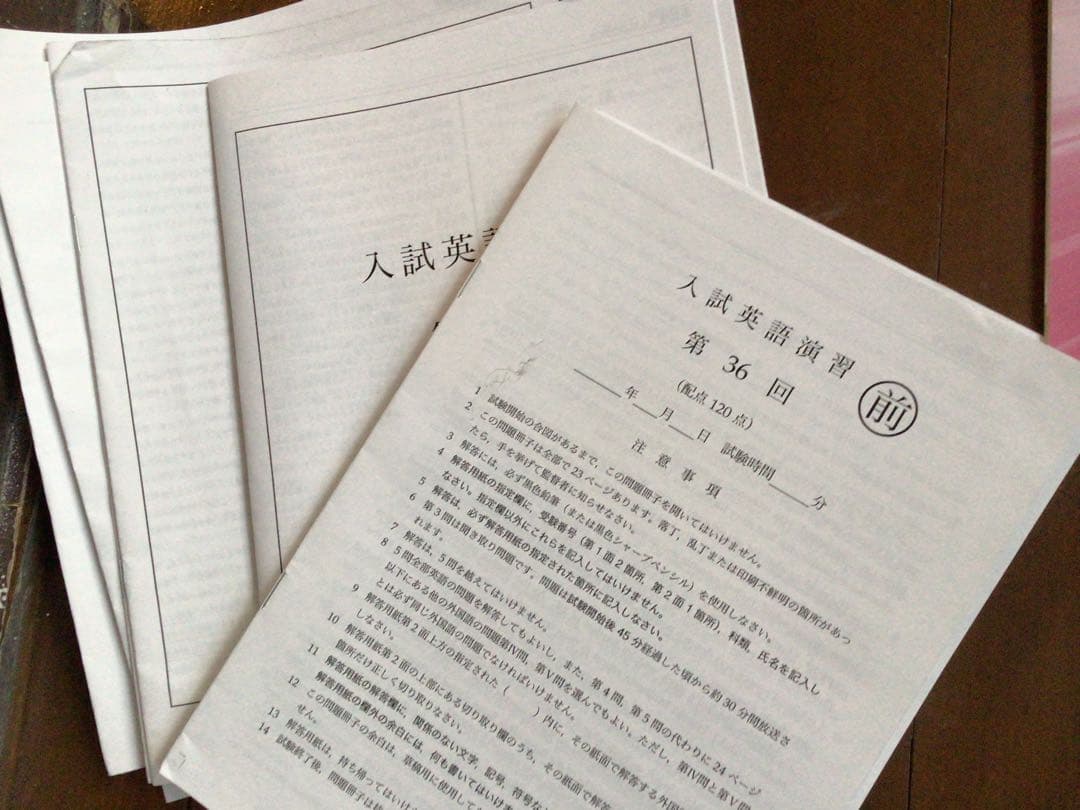 入試英
入試英語演習
第 36 回
前
(配点 120 点)
年 月 日 試験時間 分
注意事項
1 試験開始の合図があるまで，この問題冊子を開いてはいけません。
2 この問題冊子は全部で 23 ページあります。落丁，乱丁または印刷不鮮明の箇所があっ
たら，手を挙げて監督者に知らせなさい。
3 解答には，必ず黒色鉛筆（または黒色シャープペンシル）を使用しなさい。
4 解答用紙の指定欄に，受験番号（第 1 面 2 箇所，第 2 面 1 箇所），科類，氏名を記入し
なさい。指定欄以外にこれらを記入してはいけません。
5 解答は，必ず解答用紙の指定された箇所に記入しなさい。
6 第 3 問は聞き取り問題です。問題は試験開始後 45 分経過した頃から約 30 分間放送さ
れます。
7 解答は，5 問を越えてはいけません。
8 5 問全部英語の問題を解答してもよいし，また，第 4 問，第 5 問の代わりに 24 ページ
以下にある他の外国語の問題第Ⅳ問，第Ⅴ問を選んでもよい。ただし，第Ⅳ問と第Ⅴ問
とは必ず同じ外国語の問題でなければいけません。
9 解答用紙第 2 面上方の指定された（ ）内に，その紙面で解答する外国
しなさい。
10 解答用紙第 2 面の上部にある切り取り欄のうち，その紙面で解
箇所だけ正しく切り取りなさい。
11 解答用紙の解答欄に，関係のない文字，記号，符号な
解答用紙の欄外の余白には，何も書いてはいけま
12 この問題冊子の余白は，草稿用に使用して
せん。
13 解答用紙は，持ち帰ってはいけ
14 試験終了後，問題冊子は持